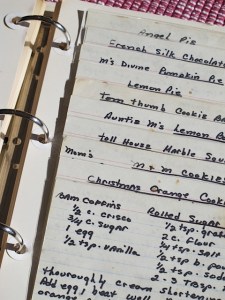 Angel Pie
French Silk Chocolate
m's Divine Pumpkin Pie
Lemon Pie
Tom thumb Cookie Ba
Auntie M's Lemon Ba
tell House Marble Squ
Mom's M & M Cookies
Christmas Orange Cook
Rolled Sugar
1/2 c. Crisco
3/4 c. Sugar
1 egg
1/2 tsp. vanilla
1/2 tsp. grat
2 c. flour
1/4 tsp. salt
1/2 tsp. sod
2 - 3 TBSP.
thoroughly cream shortening
Add egg, beat well
orange